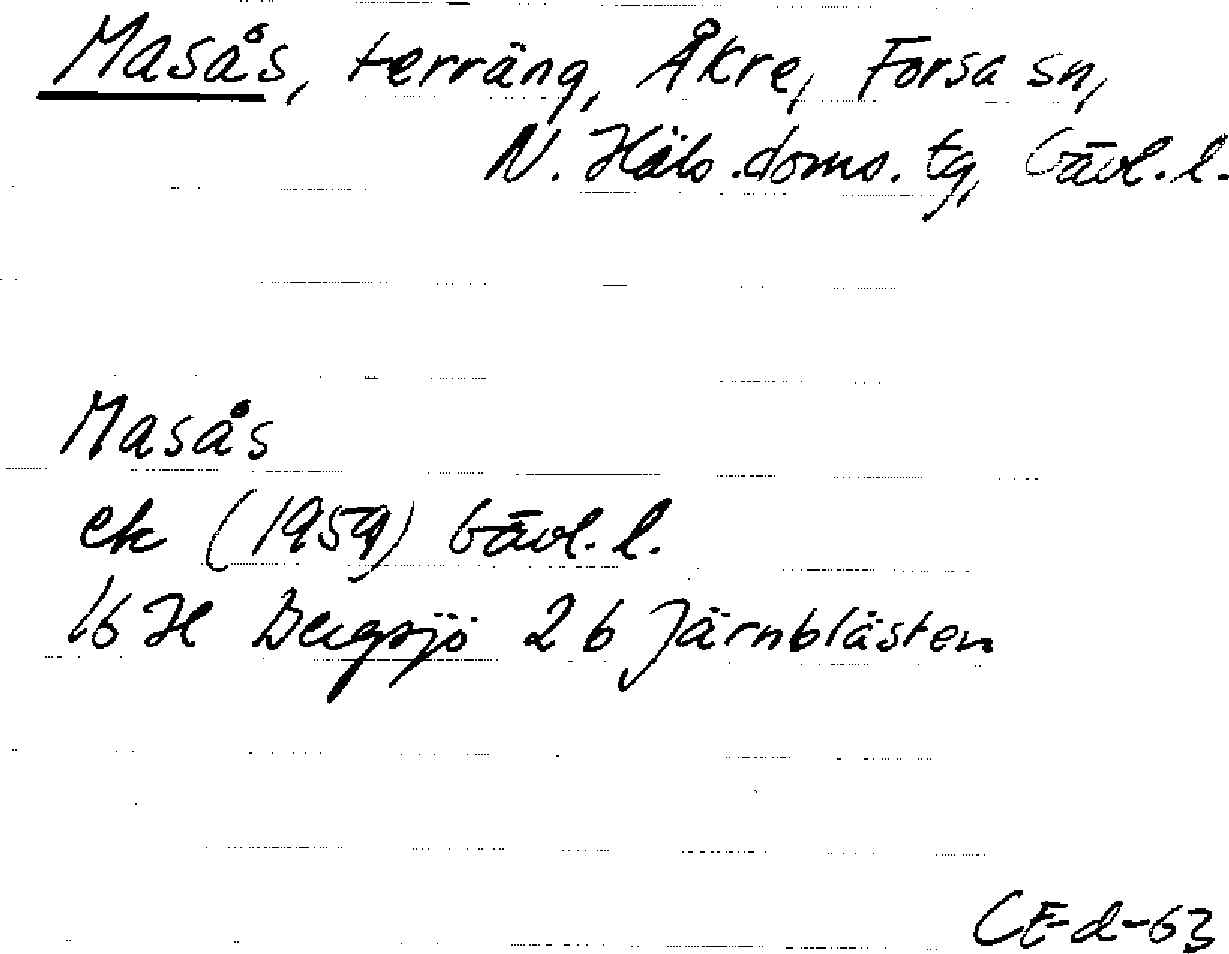 Masås, terräng, Åkre, Forsa sn,
N. Häls. doms. tg, Gävl. l.
Masås
ek (1959) Gävl. l.
16 H Bergsjö 2 b Järnblästen
CE-d-63